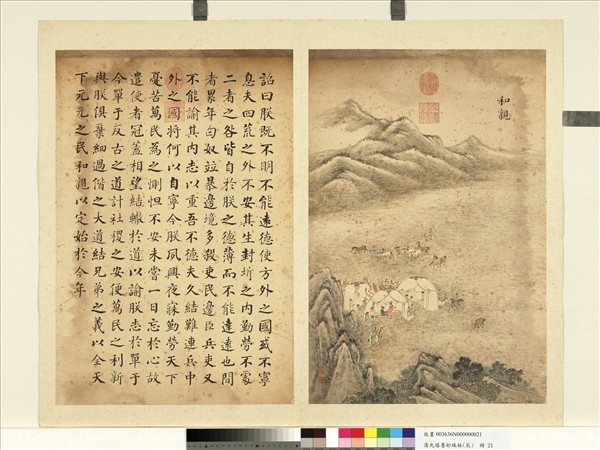 和親
詔曰朕既不明不能遠德使方外之國或不寧
息夫四荒之外不安其生封圻之內勤勞不處
二者之咎皆自於朕之德薄而不能達遠也間
者累年匈奴竝暴邊境多殺吏民邊臣兵吏又
不能諭其內志以重吾不德夫久結難連兵中
外之國將何以自寧今朕夙興夜寐勤勞天下
憂苦萬民為之惻怛不安未嘗一日忘於心故
遣使者冠蓋相望結轍於道以諭朕志於單于
今單于反古之道計社稷之安便萬民之利新
與朕俱棄細過偕之大道結兄弟之義以全天
下元元之民和親以定始於今年
故畫 003636N000000021
墨妙珠林(辰) 冊 21